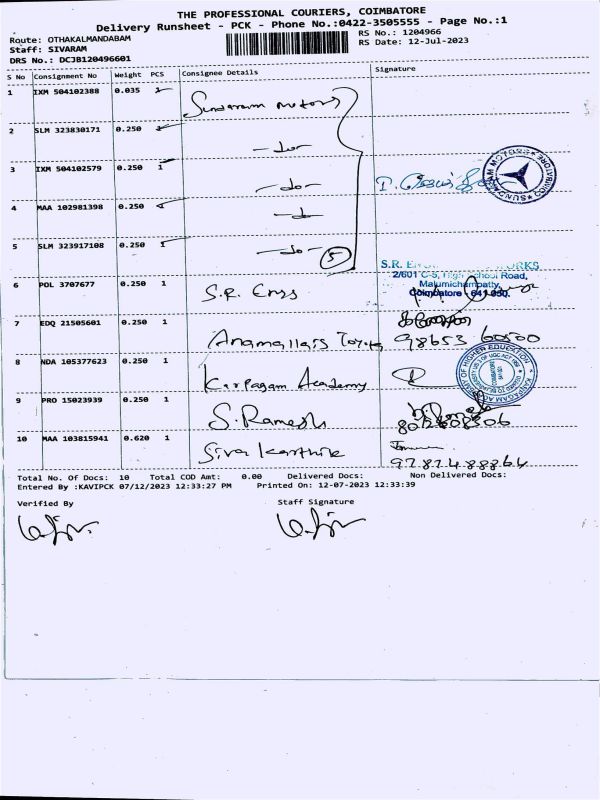 THE PROFESSIONAL COURIERS, COIMBATORE
Delivery Runsheet - PCK - Phone No.:0422-3505555 - Page No.:1
Route: OTHAKALMANDABAM
RS No.: 1204966
Staff: SIVARAM
RS Date: 12-Jul-2023
DRS No.: DCJB120496601
S No Consignment No Weight PCS Consignee Details Signature
1 IXM 504102388 0.035 1 Sundaram motors
2 SLM 323830171 0.250 1 -do-
3 IXM 504102579 0.250 1 -do-
SUNDARAM MOTORS
COIMBATORE
4 MAA 102981398 0.250 1 -do-
5 SLM 323917108 0.250 1 -do- 5
S.R. WORKS
2/601 C-5, High School Road,
Malumichampatty,
Coimbatore 641 050.
6 POL 3707677 0.250 1 S.R. Engs
7 EDQ 21505601 0.250 1 Anamallais Toyota 98653 60500
8 NDA 105377623 0.250 1 Karpagam Academy
KARPAGAM ACADEMY OF HIGHER EDUCATION
9 PRO 15023939 0.250 1 S. Ramesh
10 MAA 103815941 0.620 1 Siva Karthik
Total No. Of Docs: 10 Total COD Amt: 0.00 Delivered Docs: Non Delivered Docs:
Entered By :KAVIPCK 07/12/2023 12:33:27 PM Printed On: 12-07-2023 12:33:39
Verified By Staff Signature